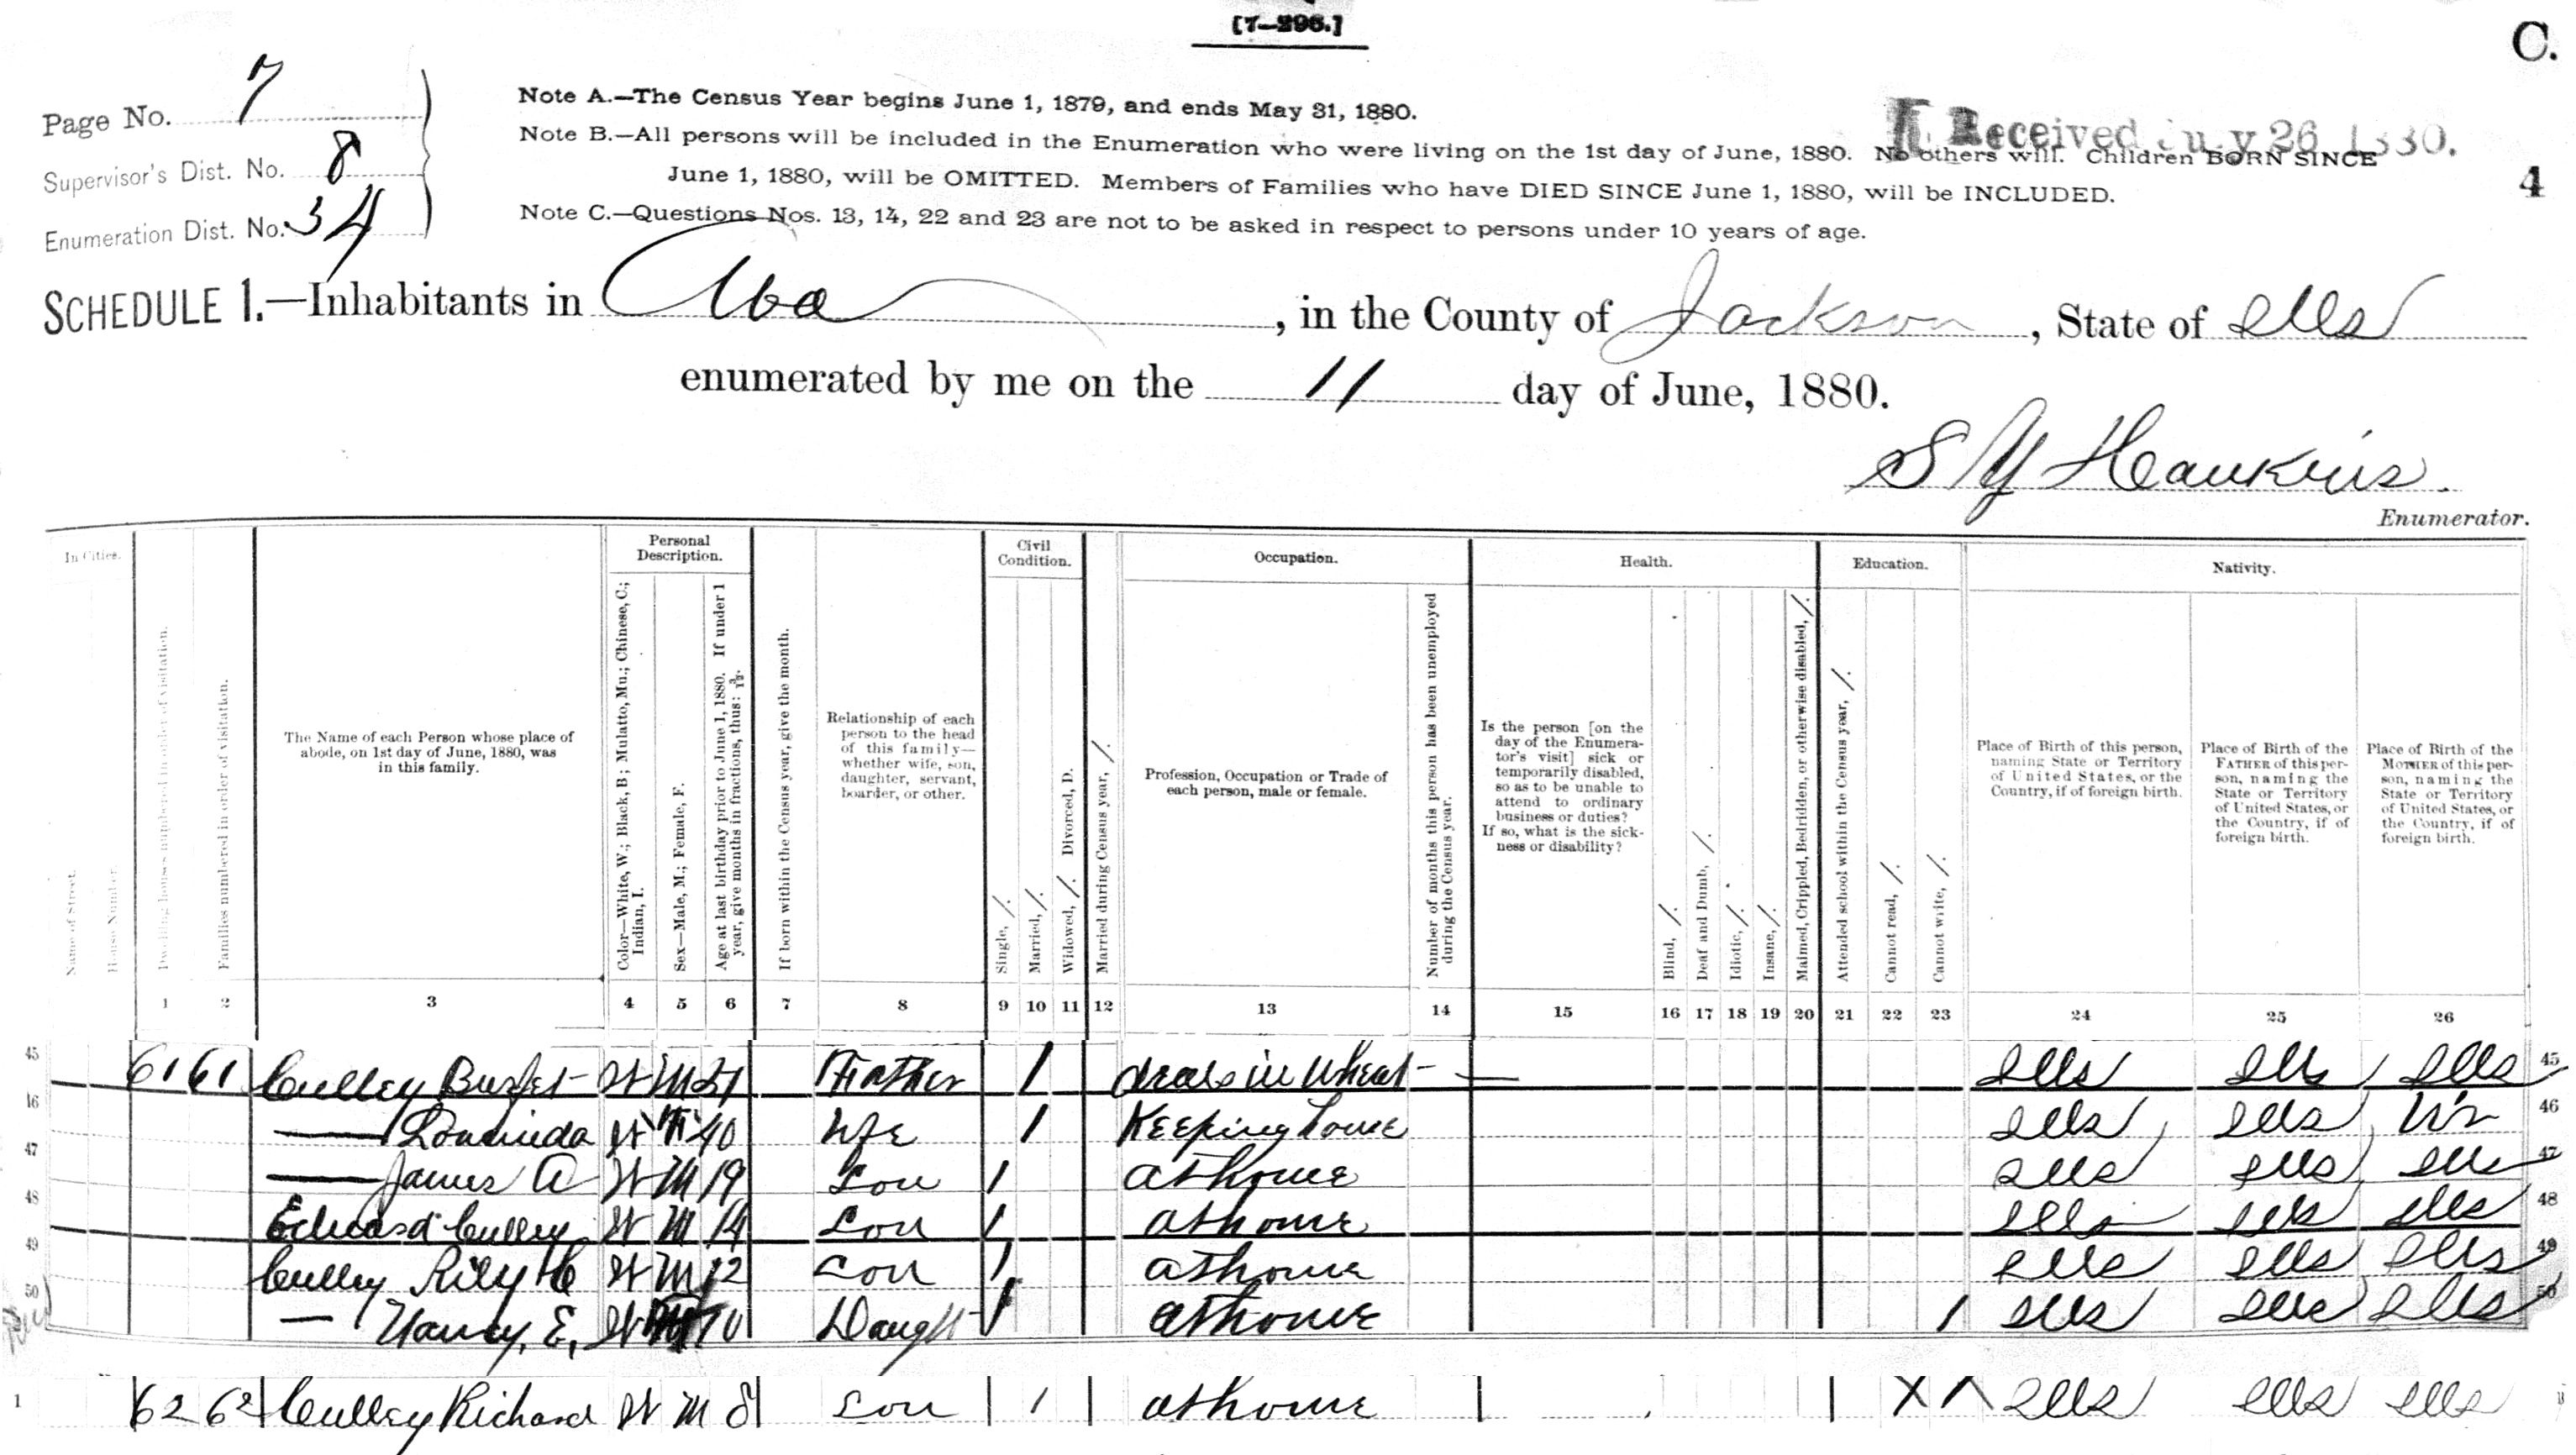 [7—296.]
C.
Page No. 7
Supervisor's Dist. No. 8
Enumeration Dist. No. 34
Note A.—The Census Year begins June 1, 1879, and ends May 31, 1880.
Note B.—All persons will be included in the Enumeration who were living on the 1st day of June, 1880. No others will. Children BORN SINCE
June 1, 1880, will be OMITTED. Members of Families who have DIED SINCE June 1, 1880, will be INCLUDED.
Note C.—Questions Nos. 13, 14, 22 and 23 are not to be asked in respect to persons under 10 years of age.
Received July 26 1880.
4
SCHEDULE 1.—Inhabitants in Ava, in the County of Jackson, State of Ills
enumerated by me on the 11 day of June, 1880.
S Y Hawkins.
Enumerator.
In Cities.
Name of Street.
House Number.
Dwelling houses numbered in order of visitation.
Families numbered in order of visitation.
The Name of each Person whose place of
abode, on 1st day of June, 1880, was
in this family.
Personal
Description.
Color—White, W.; Black, B; Mulatto, Mu.; Chinese, C.;
Indian, I.
Sex—Male, M.; Female, F.
Age at last birthday prior to June 1, 1880. If under 1
year, give months in fractions, thus: 3/12.
If born within the Census year, give the month.
Relationship of each
person to the head
of this family—
whether wife, son,
daughter, servant,
boarder, or other.
Civil
Condition.
Single, /.
Married, /.
Widowed, /. Divorced, D.
Married during Census year, /.
Occupation.
Profession, Occupation or Trade of
each person, male or female.
Number of months this person has been unemployed
during the Census year.
Health.
Is the person [on the
day of the Enumera-
tor's visit] sick or
temporarily disabled,
so as to be unable to
attend to ordinary
business or duties?
If so, what is the sick-
ness or disability?
Blind, /.
Deaf and Dumb, /.
Idiotic, /.
Insane, /.
Maimed, Crippled, Bedridden, or otherwise disabled, /.
Education.
Attended school within the Census year, /.
Cannot read, /.
Cannot write, /.
Nativity.
Place of Birth of this person,
naming State or Territory
of United States, or the
Country, if of foreign birth.
Place of Birth of the
FATHER of this per-
son, naming the
State or Territory
of United States, or
the Country, if of
foreign birth.
Place of Birth of the
MOTHER of this per-
son, naming the
State or Territory
of United States, or
the Country, if of
foreign birth.
1 2 3 4 5 6 7 8 9 10 11 12 13 14 15 16 17 18 19 20 21 22 23 24 25 26
45 61 61 Culley W M Father 1 deals in Wheat — Ills Ills Ills 45
46 — W F 40 Wfe 1 Keeping house Ills Ills 46
47 — James A W M 19 Son 1 at home Ills Ills Ills 47
48 Edward Culley W M 14 Son 1 at home Ills Ills Ills 48
49 Culley Rily H W M 12 Son 1 at home Ills Ills Ills 49
50 — Nancy, E, W 10 Daught 1 at home 1 Ills Ills Ills 50
1 62 62 Culley Richard W M 8 Son / at home X Ills Ills Ills